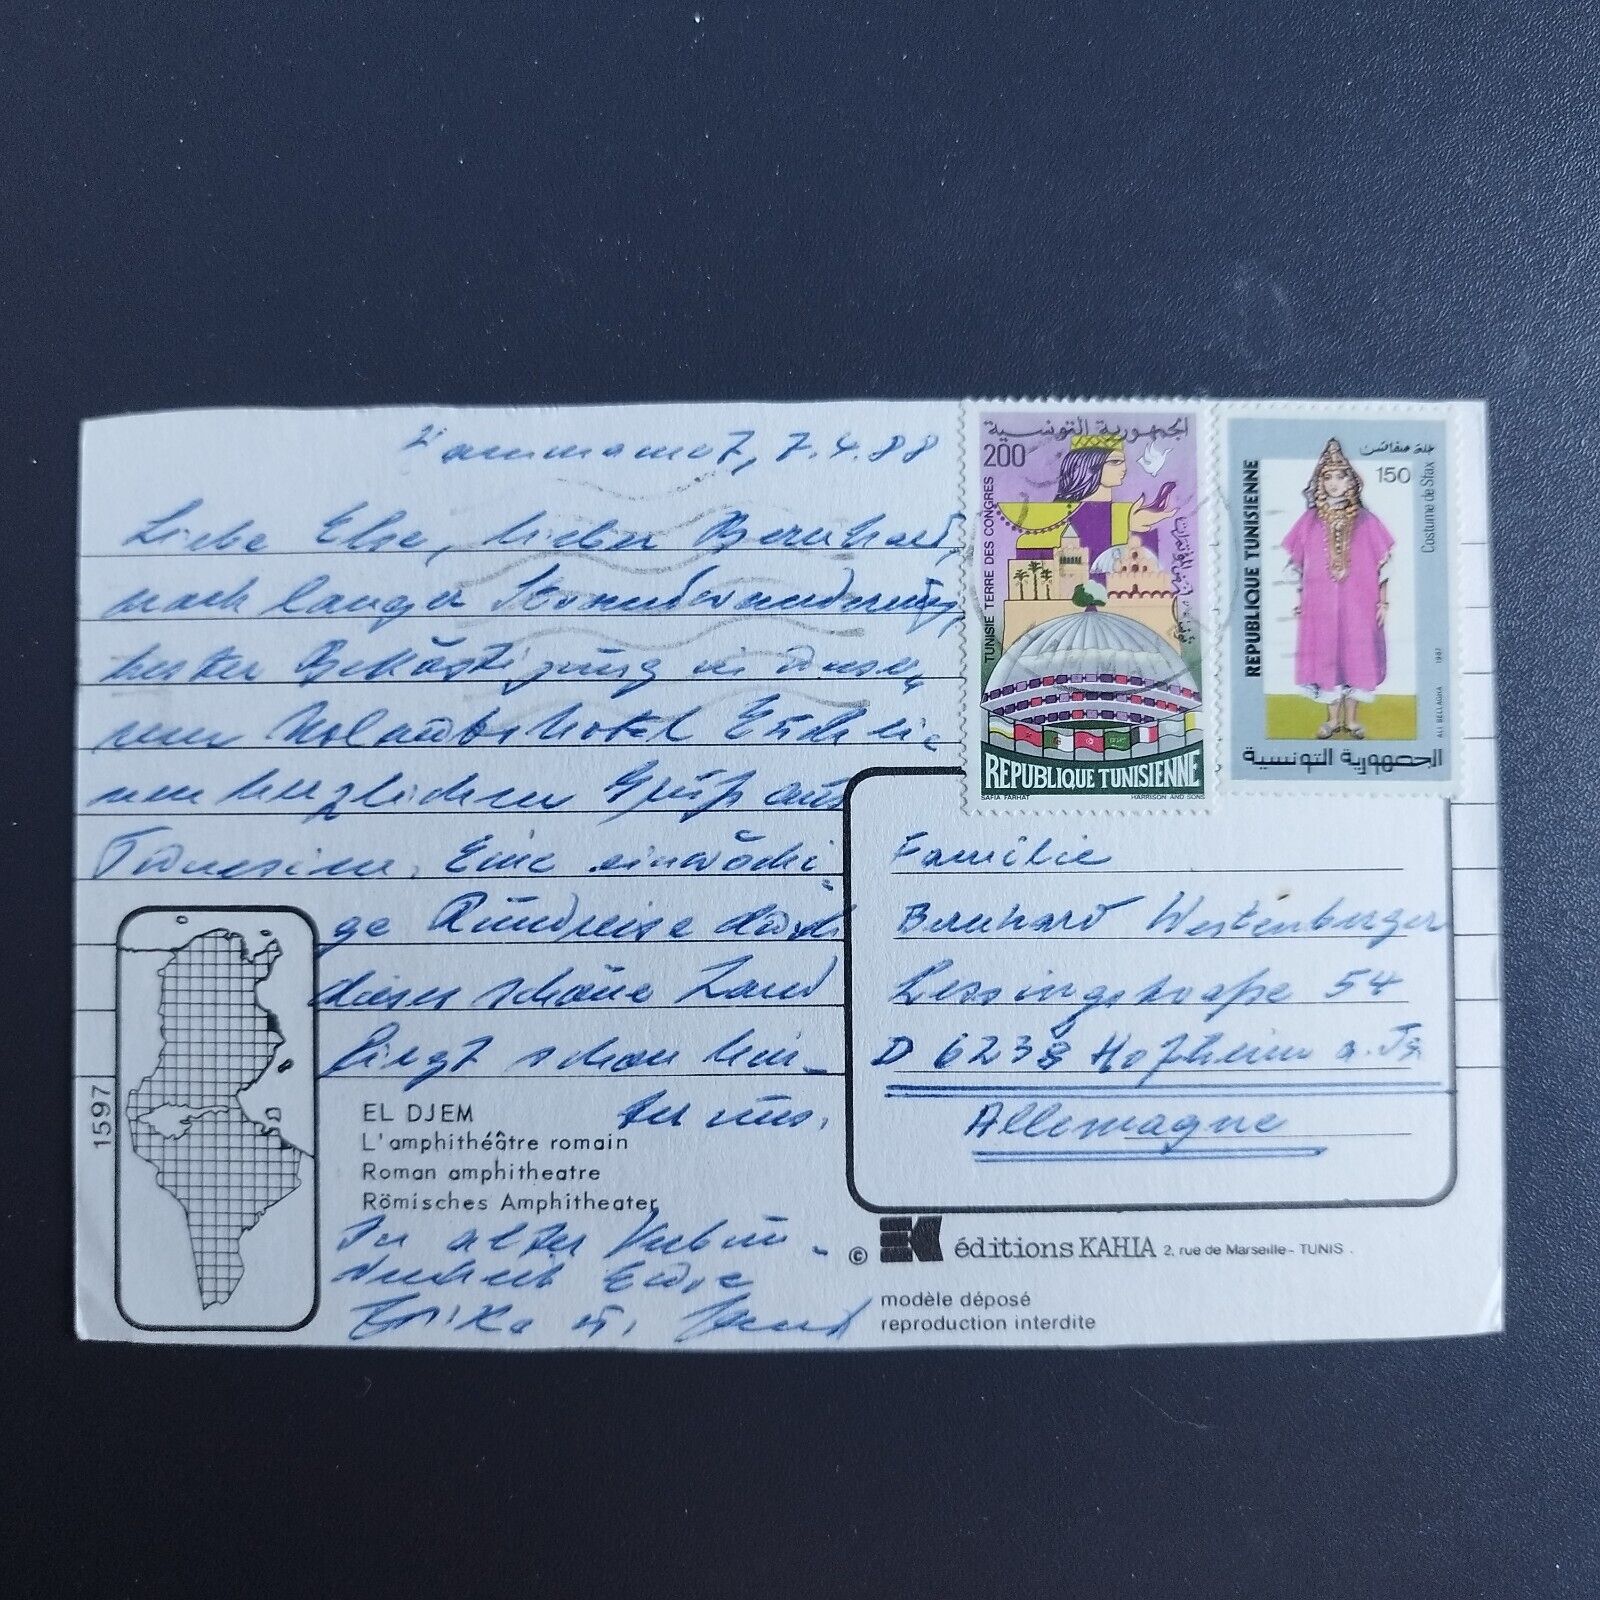 Hammamet, 7.4.88
Liebe Else, lieber Bernhard,
nach langer Strandwanderung,
bester Beköstigung in unse-
rem Urlaubshotel Euch ei-
nen herzlichen Gruß aus
Tunesien. Eine einwöchi-
ge Rundreise durch
dieses schöne Land
liegt schon hin-
ter uns.
EL DJEM
L'amphithéâtre romain
Roman amphitheatre
Römisches Amphitheater
In alter Verbun-
denheit Eure
Erika u.
1597
الجمهورية التونسية
200
TUNISIE TERRE DES CONGRES
REPUBLIQUE TUNISIENNE
SAFIA FARHAT HARRISON AND SONS
جلة صفاقس
150
Costume de Sfax
REPUBLIQUE TUNISIENNE
ALI BELLAGHA 1987
الجمهورية التونسية
Familie
Bernhard Westenberger
Lessingstraße 54
D 6238 Hofheim a. Ts
Allemagne
© EK éditions KAHIA 2, rue de Marseille - TUNIS.
modèle déposé
reproduction interdite